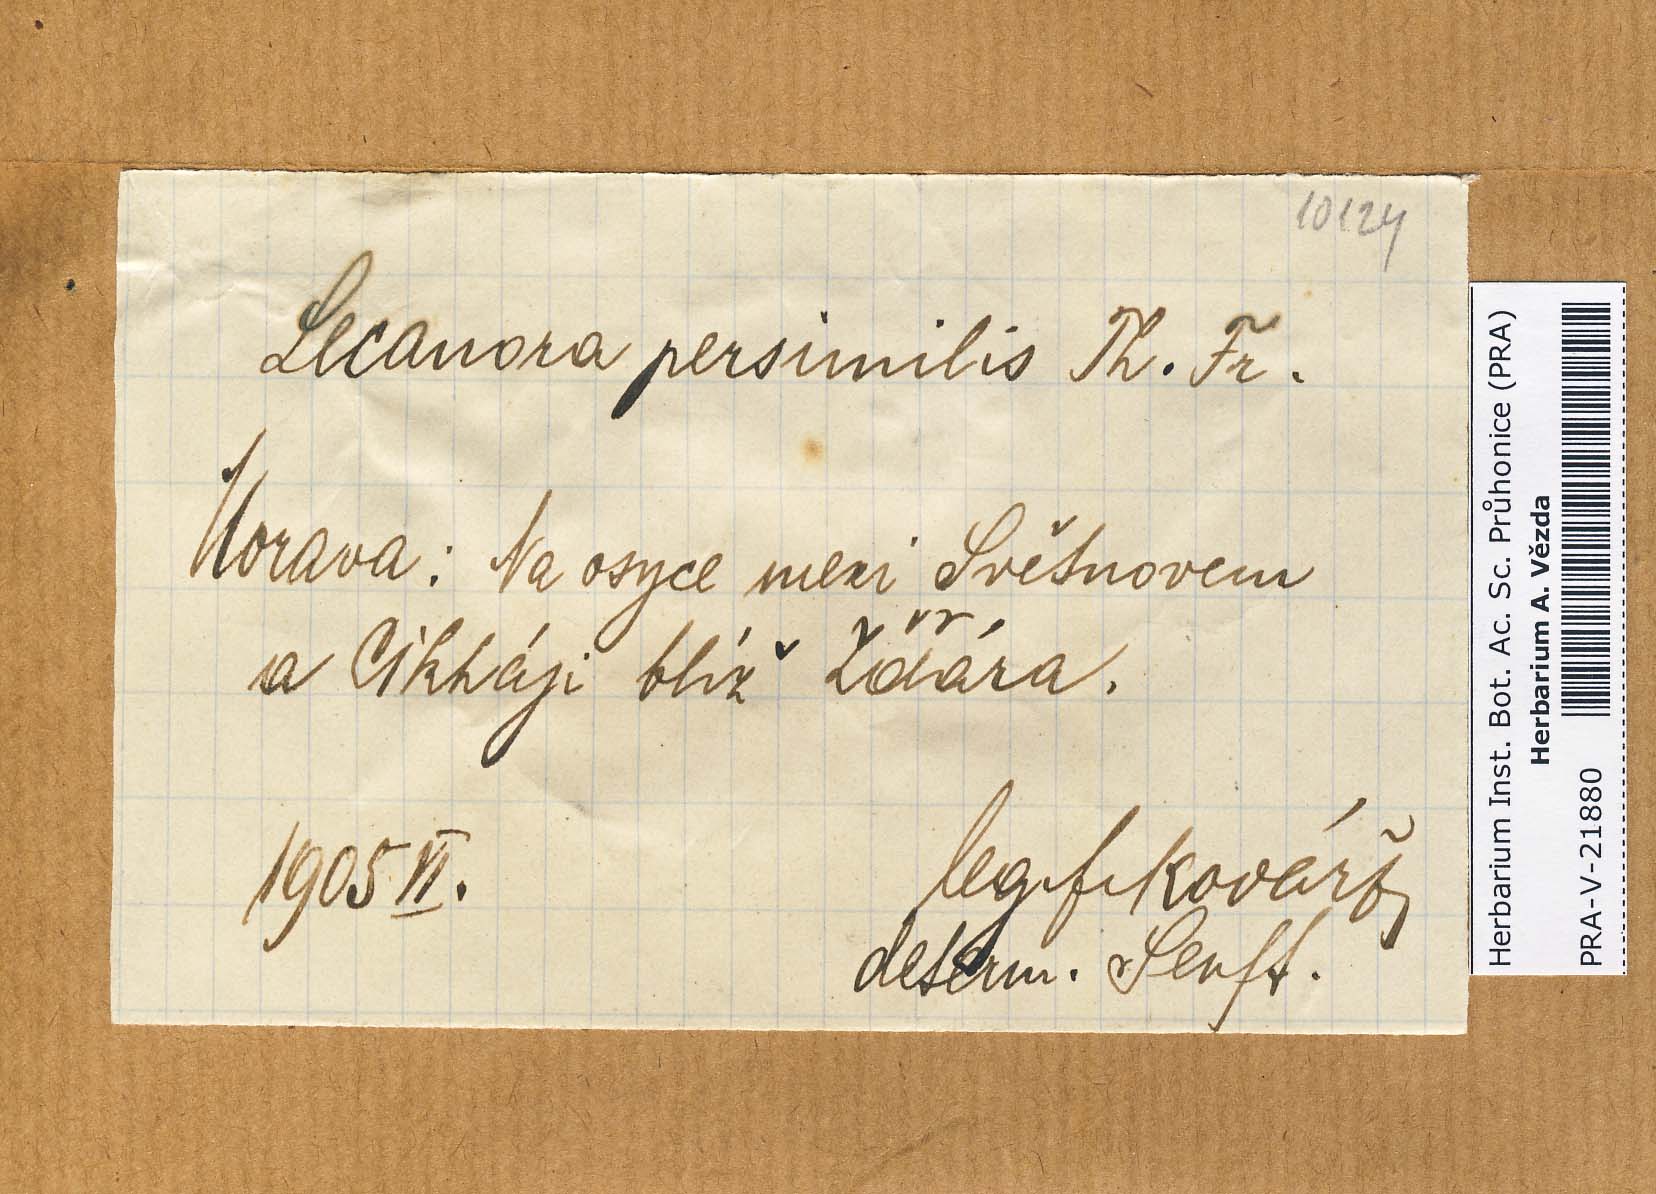 10124
Lecanora persimilis Th. Fr.
Morava: Na osyce mezi Světnovem
a Cikháji blíž Žďára.
1905 VI.
leg. f. Kovář
determ. Senft.
Herbarium Inst. Bot. Ac. Sc. Průhonice (PRA)
Herbarium A. Vězda
PRA-V-21880